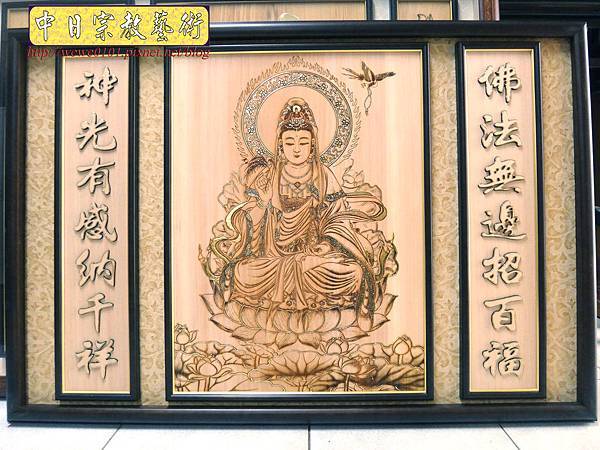 中日宗教藝術
http://wewe0101.pixnet.net/blog
佛法無邊招百福
神光有感納千祥